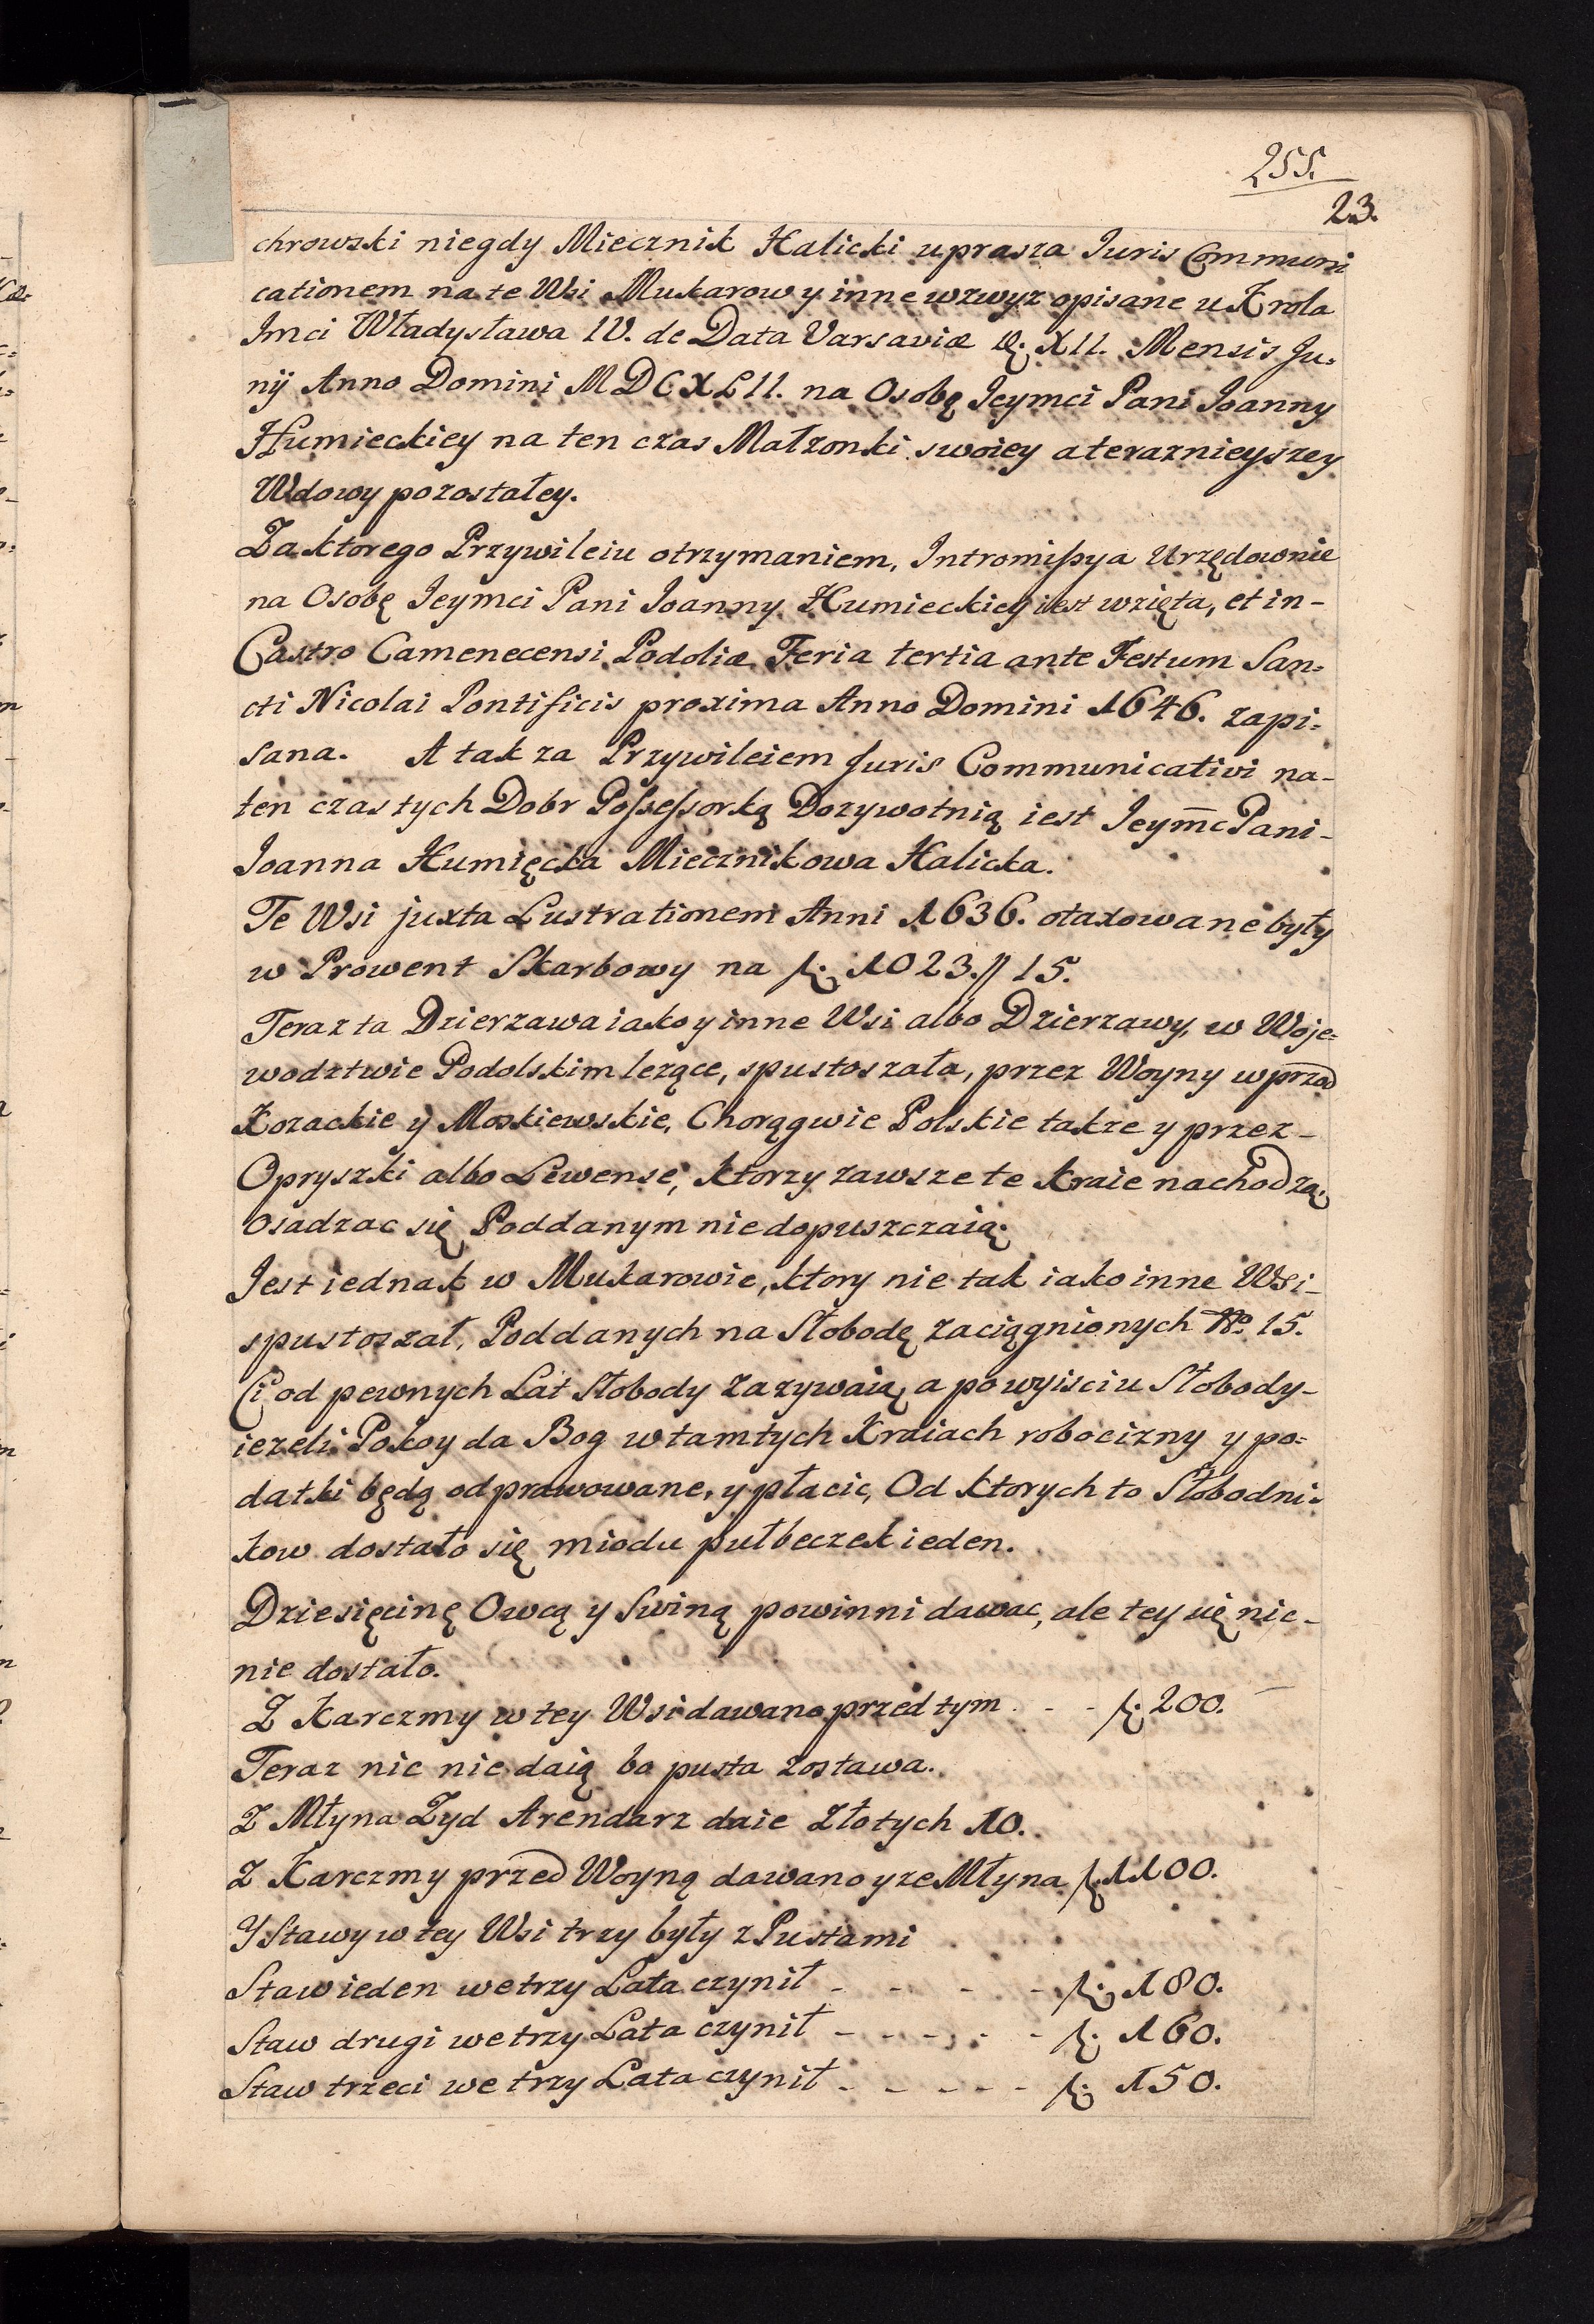 255.
23.
chrowski niegdy Miecznik Halicki uprasza Juris Communi
cationem na te Wsi Mukarow y inne wzwyz opisane u Krola
Jmci Władysława IV. de Data Varsaviæ D. XII. Mensis Ju:
nij Anno Domini MDCXLII. na Osobę Jeymci Pani Joanny
Humieckiey na ten czas Małzonki swoiey a terazniejszey
Wdowy pozostałey.
Za ktorego Przywileiu otrzymaniem, Intromissya Urzędownie
na Osobę Jeymci Pani Joanny Humieckiey iest wzięta, et in-
Castro Camenecensi Podoliæ Feria tertia ante Festum San:
cti Nicolai Pontificis proxima Anno Domini 1646. zapi:
sana. A tak za Przywileiem Juris Communicativi na-
ten czas tych Dobr Possessorką Dozywotnią iest Jeymc Pani-
Joanna Humięcka Miecznikowa Halicka.
Te Wsi juxta Lustrationem Anni 1636. otaxowane były
w Prowent Skarbowy na f. 1023. /1 15.
Teraz ta Dzierzawa iako y inne Wsi albo Dzierzawy, w Woje:
wodztwie Podolskim lezące, spustoszała, przez Woyny wprzod
Kozackie y Moskiewskie, Chorągwie Polskie takze y przez-
Opryszki albo Lewense, ktorzy zawsze te Kraie nachodzą,
osadzac się Poddanym niedopuszczaią.
Jest iednak w Mukarowie, ktory nie tak iako inne Wsi-
spustoszał, Poddanych na Słobodę zaciągnionych No. 15.
Ci od pewnych Lat Słobody zazywaią, a po wyisciu Słobody-
iezeli Pokoy da Bog w tamtych Kraiach robocizny y po:
datki będą odprawowane, y płacic, Od ktorych to Słobodni:
kow dostało się miodu puł beczek ieden.
Dziesięcinę Owcą y Swiną powinni dawac, ale tey się nic-
nie dostało.
Z Karczmy w tey Wsi dawano przed tym - - f. 200.
Teraz nic nie daią bo pusta zostawa.
Z Młyna Zyd Arendarz daie Złotych 10.
Z Karczmy przed Woyną dawano y ze Młyna f. 1100.
Y Stawy w tey Wsi trzy były z Pustami
Staw ieden we trzy Lata czynił - - - - f. 180.
Staw drugi we trzy Lata czynił - - - - - f. 160.
Staw trzeci we trzy Lata czynił - - - - - f. 150.